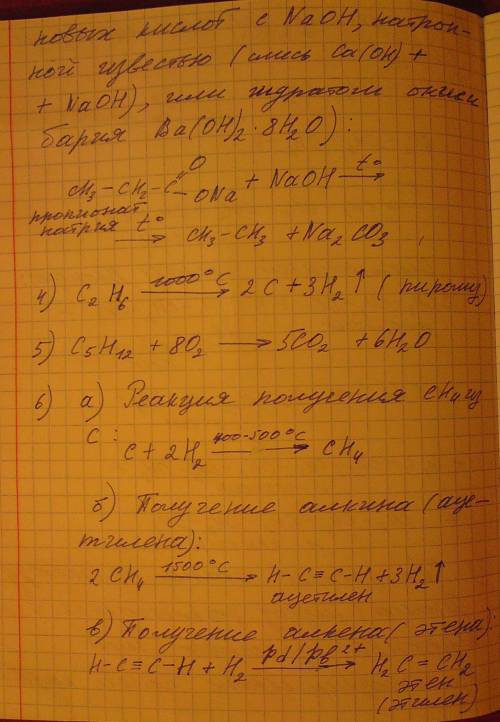 новых кислот с NaOH, натрон-
ной известью (смесь Ca(OH) +
+ NaOH), или гидратом окиси
бария Ba(OH)2·8H2O):
CH3-CH2-C=O-ONa + NaOH t° →
пропионат
натрия
t° → CH3-CH3 + Na2CO3,
4) C2H6 1000°C → 2C + 3H2↑ (пиролиз)
5) C5H12 + 8O2 → 5CO2 + 6H2O
6) а) Реакция получения CH4 из
C:
C + 2H2 400-500°C → CH4
б) Получение алкина (аце-
тилена):
2CH4 1500°C → H-C≡C-H + 3H2↑
ацетилен
в) Получение алкена (этена):
H-C≡C-H + H2 Pd/Pb2+ → H2C=CH2
этен
(этилен)